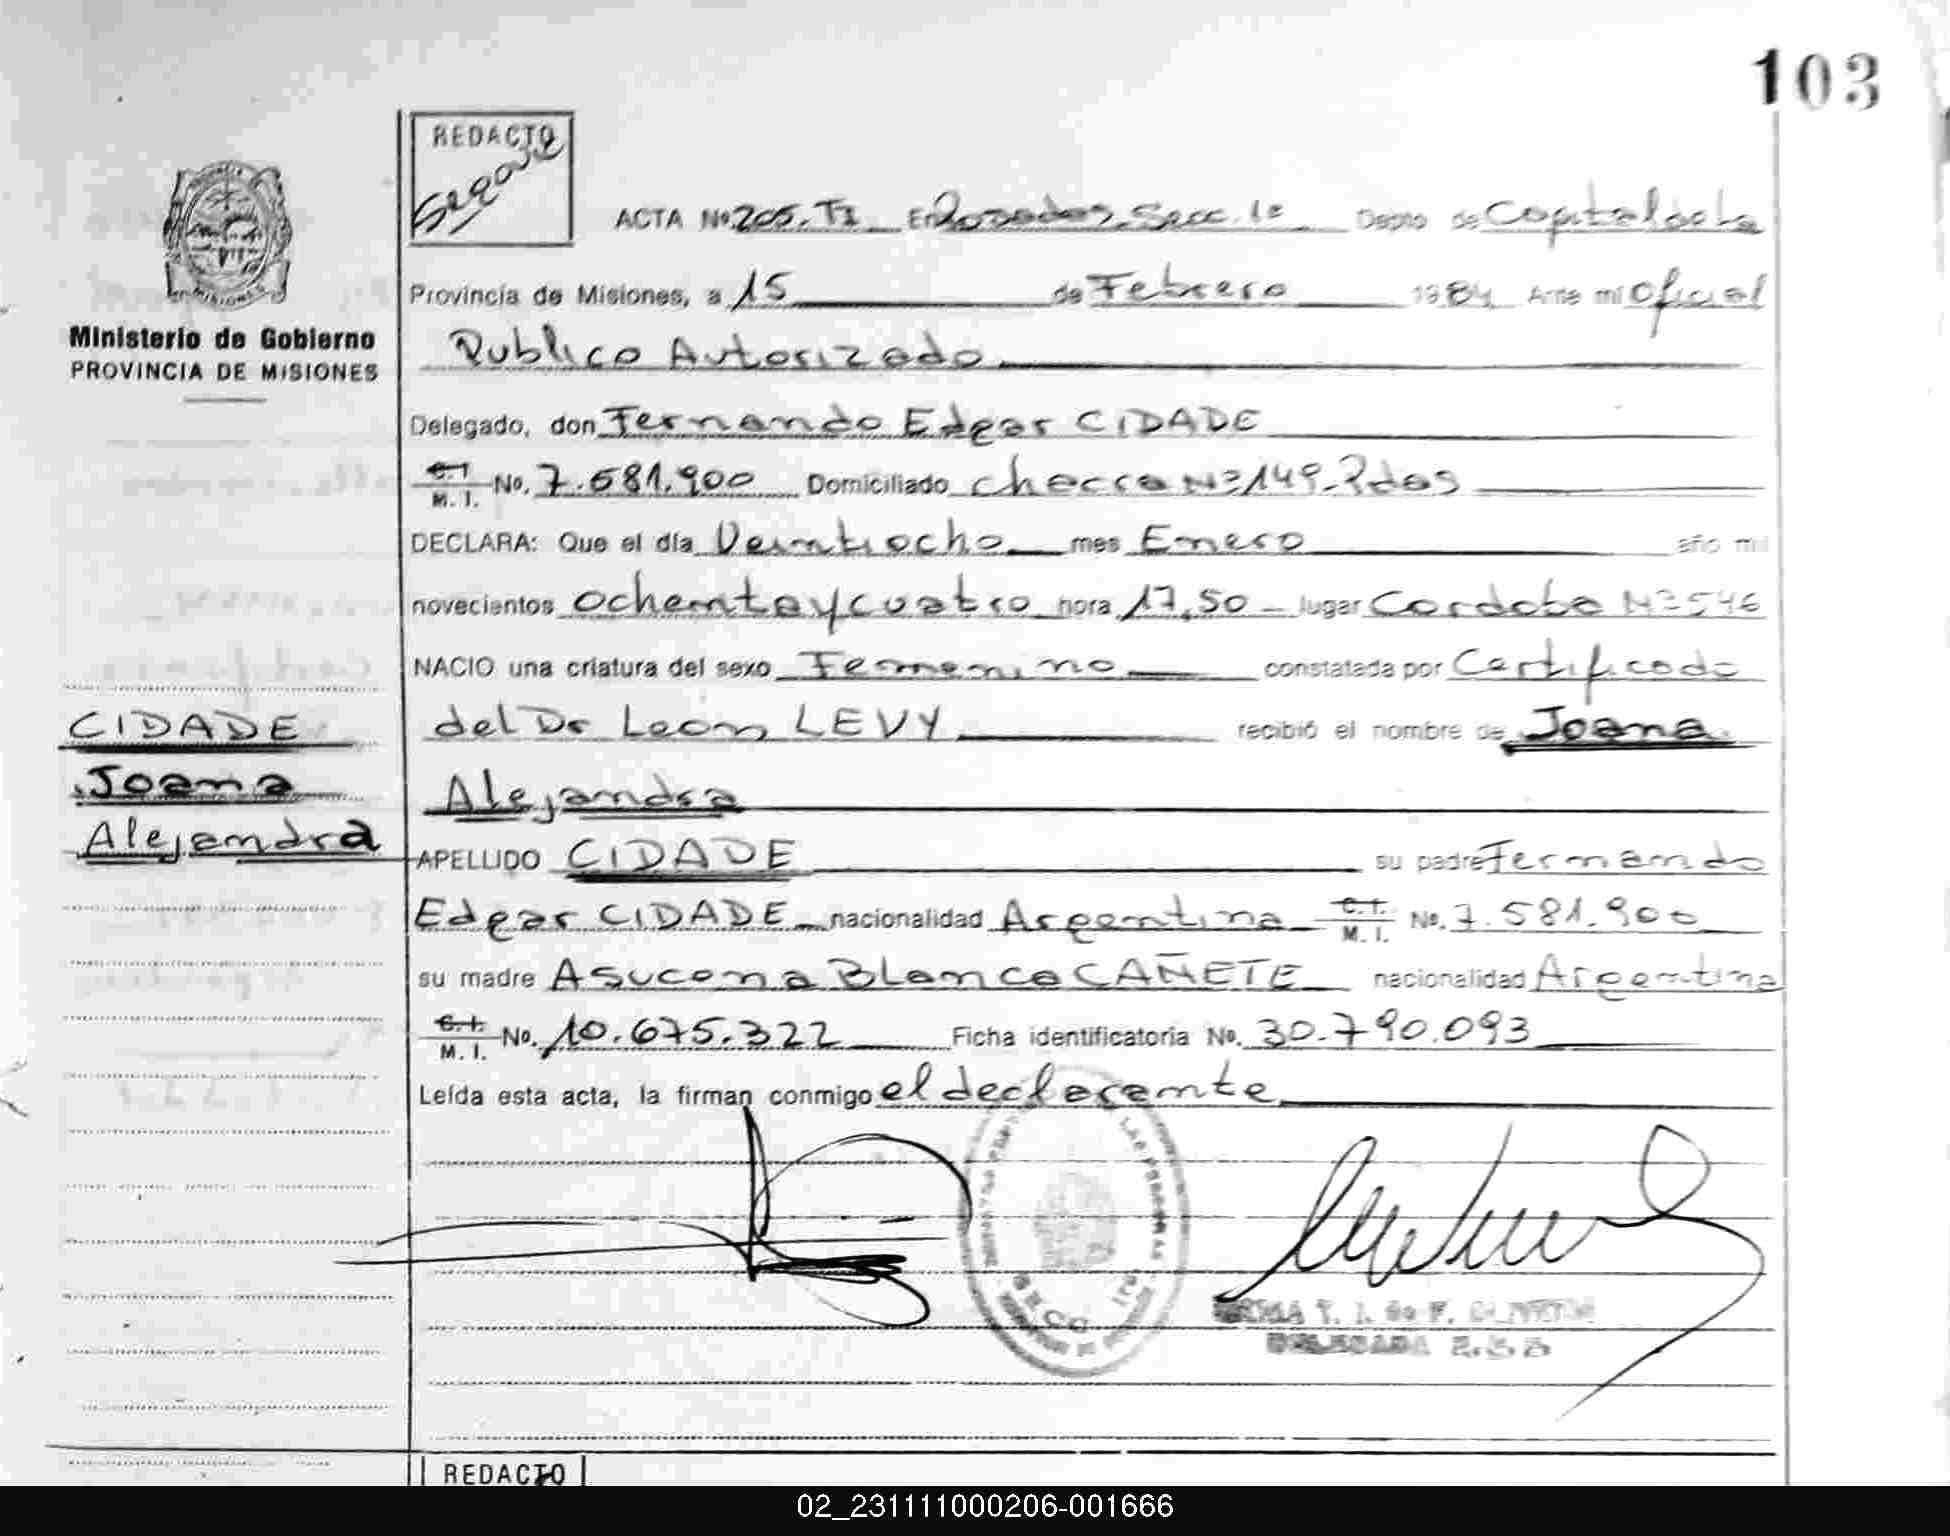 103
REDACTO
ACTA No. 205. TI En Posadas. Secc. 1º Depto de Capital de la
Provincia de Misiones, a 15 de Febrero 1984 Ante mi Oficial
Ministerio de Gobierno
PROVINCIA DE MISIONES
Publico Autorizado
Delegado, don Fernando Edgar CIDADE
C.I. M. I. No. 7.581.900 Domiciliado checca Nº 149-Pdas
DECLARA: Que el día Veintiocho mes Enero año mil
novecientos ochentaycuatro hora 17,50 lugar Cordoba Nº 546
NACIO una criatura del sexo Femenino constatada por Certificado
CIDADE
Joana
Alejandra
del Dr Leon LEVY recibió el nombre de Joana
Alejandra
APELLIDO CIDADE su padre Fernando
Edgar CIDADE nacionalidad Argentina C.I. M. I. No. 7.581.900
su madre Asucena Blanca CAÑETE nacionalidad Argentina
C.I. M. I. No. 10.675.322 Ficha identificatoria No. 30.790.093
Leída esta acta, la firman conmigo el declarante
LAS PERSONAS
SECC. 1
REDACTO
02_231111000206-001666